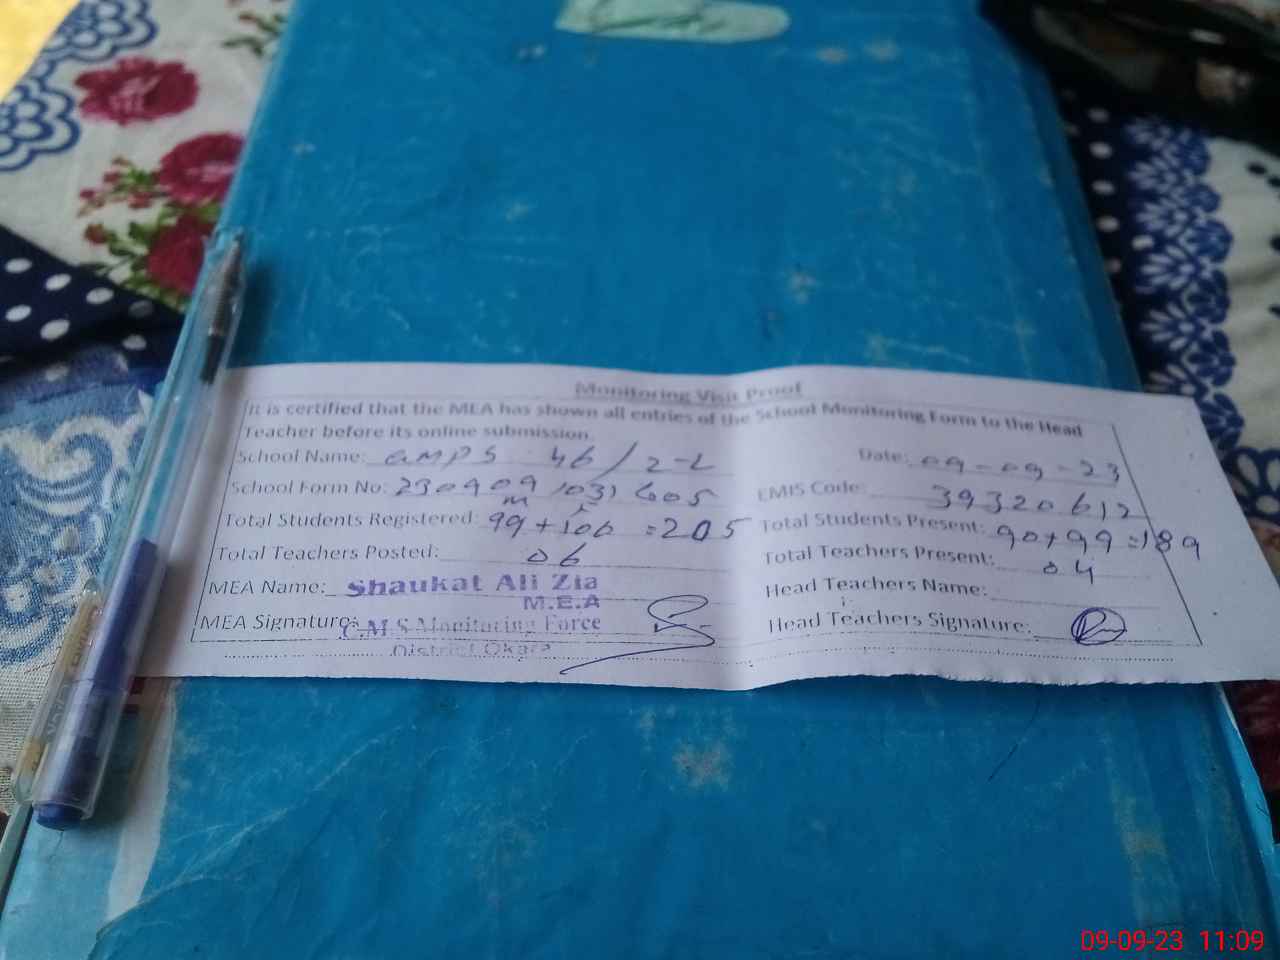 Monitoring Visit Proof
It is certified that the MEA has shown all entries of the School Monitoring Form to the Head
Teacher before its online submission.
School Name: GMPS 46/2-L Date: 09-09-23
School Form No: 230909 1031605 EMIS Code: 39320612
Total Students Registered: 99 + 106 = 205 Total Students Present: 90+99=189
M F
Total Teachers Posted: 06 Total Teachers Present: 04
MEA Name: Shaukat Ali Zia Head Teachers Name:
M.E.A
MEA Signature: C.M.S Monitoring Force Head Teachers Signature:
District Okara
09-09-23 11:09